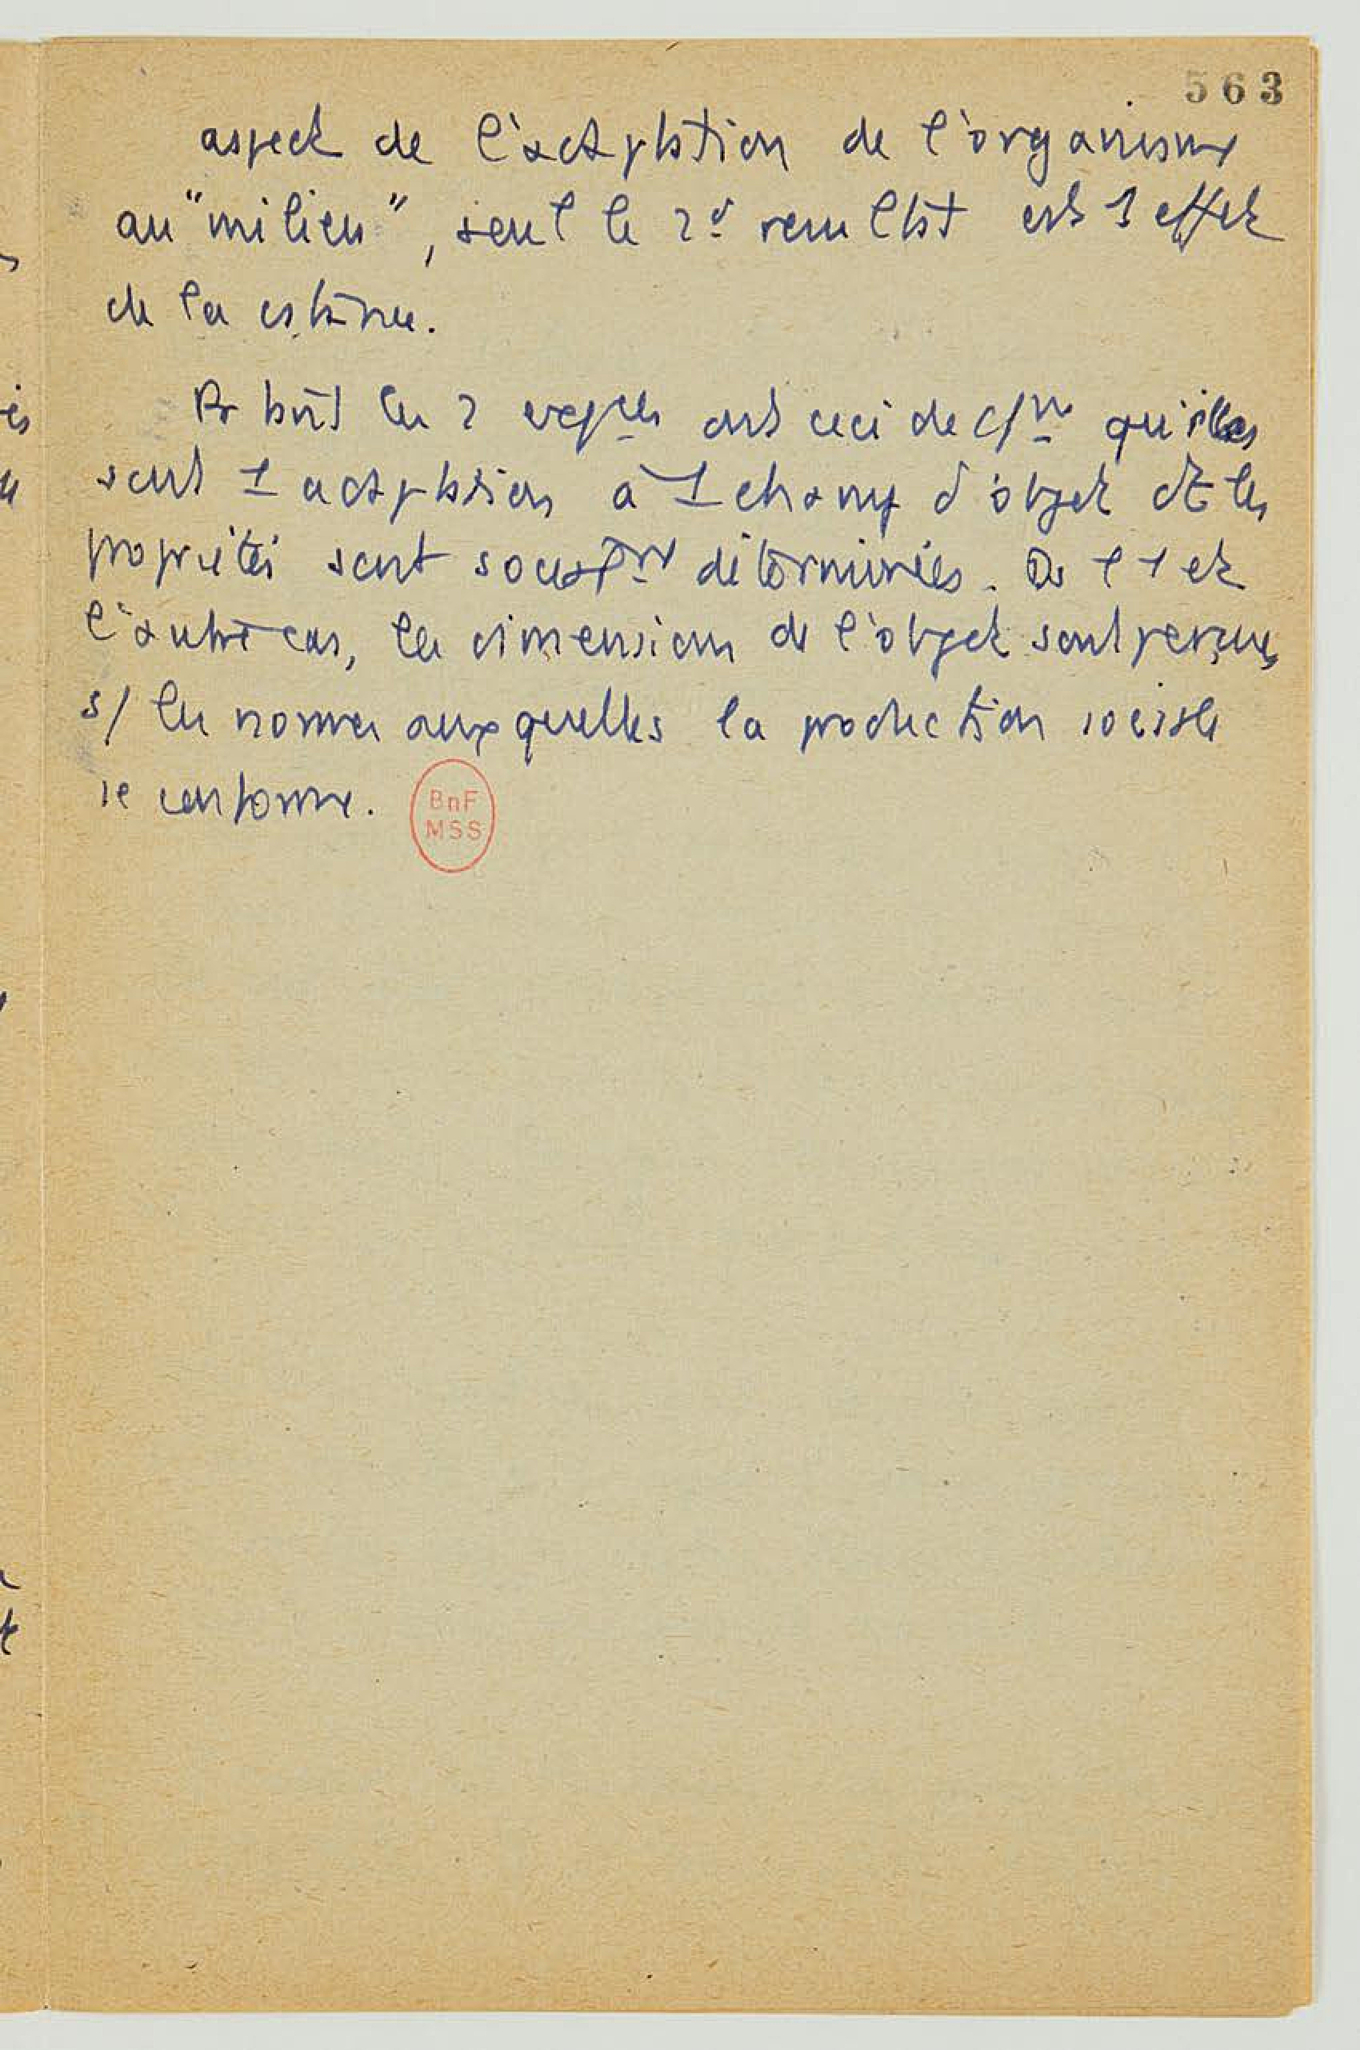 563
aspect de l'adaptation de l'organisme
au "milieu", seul le 2d résultat est 1 effet
de la
les 2 ont ceci de qu'elles
sont 1 adaptation à 1 champ d'objet dt les
propriétés sont déterminées. Ds l'1 et
l'autre cas, les dimensions de l'objet sont perçues
s/ les normes auxquelles la production sociale
se conforme.
BnF
MSS